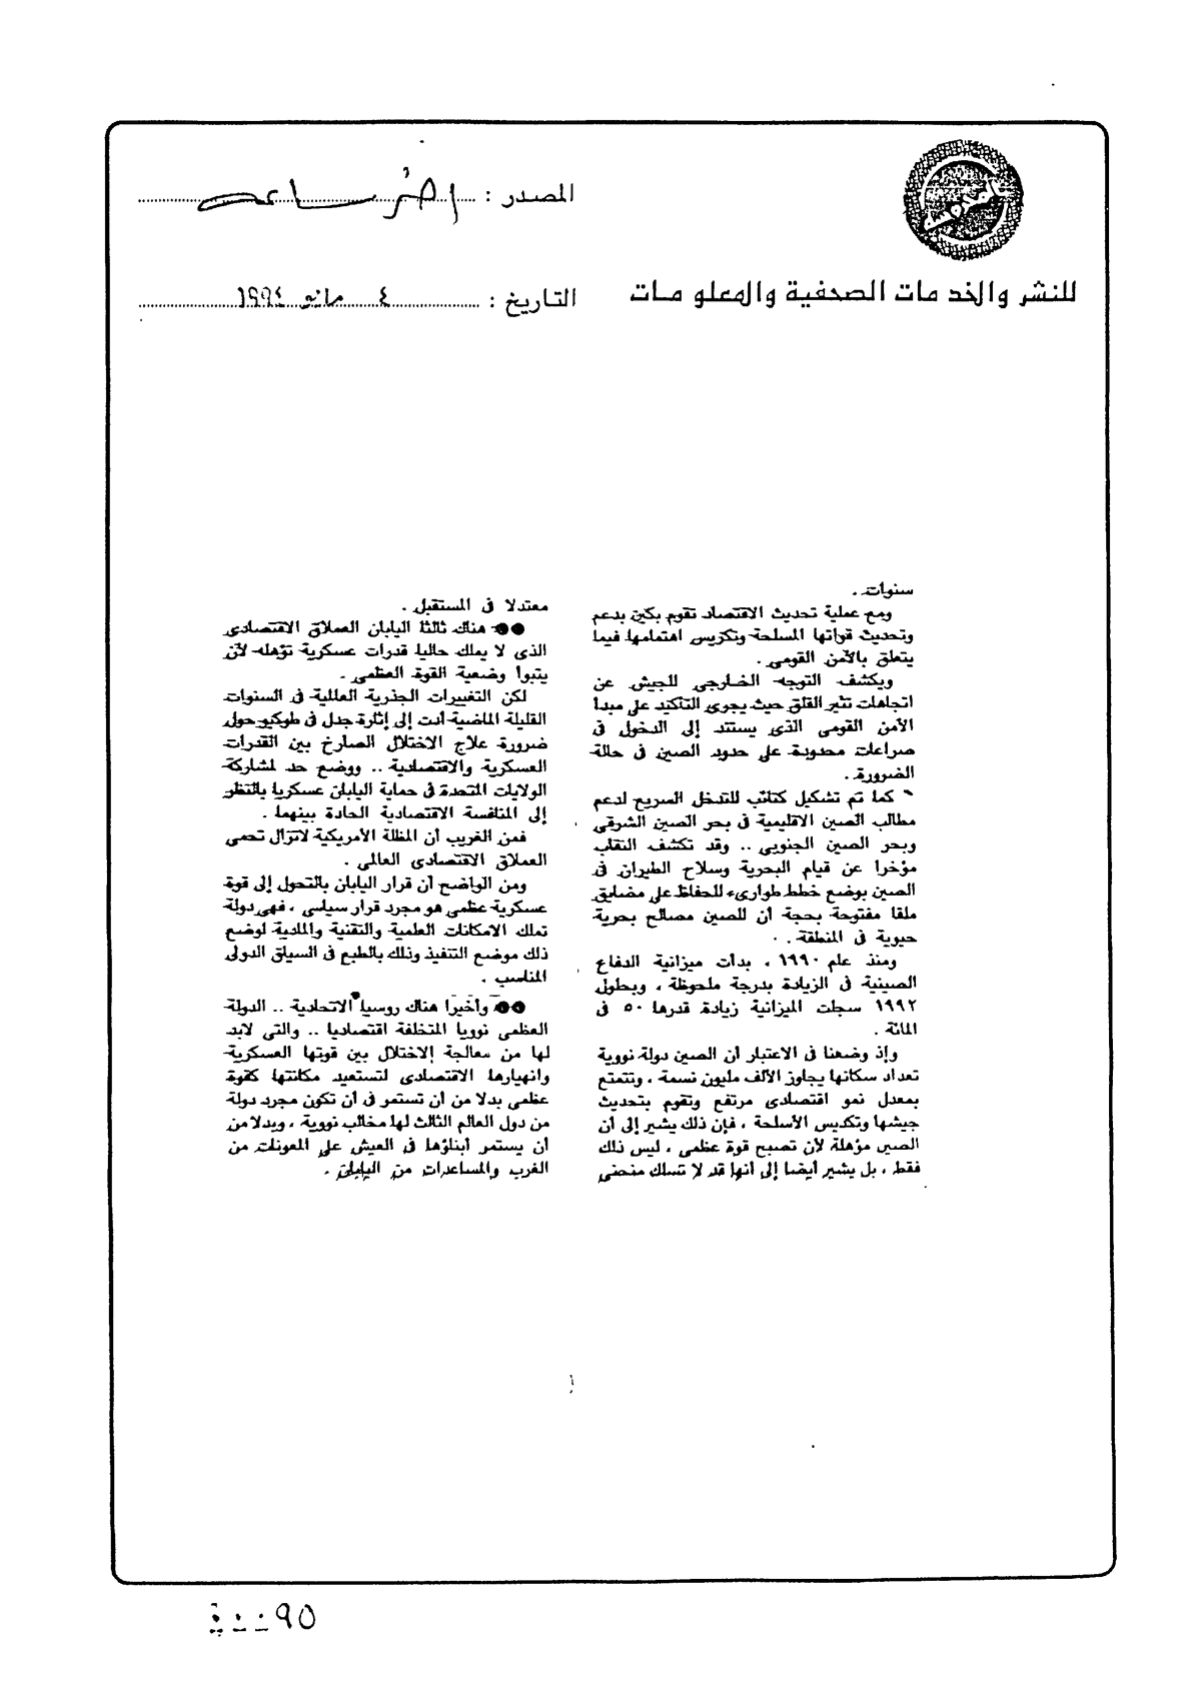 المصدر : اخر ساعه
للنشر والخدمات الصحفية والمعلومات
التاريخ : ٤ مايو ١٩٩٤
سنوات .
ومع عملية تحديث الاقتصاد تقوم بكين بدعم
وتحديث قواتها المسلحة وتكريس اهتمامها فيما
يتعلق بالأمن القومى .
ويكشف التوجه الخارجي للجيش عن
اتجاهات تثير القلق حيث يجرى التأكيد على مبدا
الأمن القومى الذى يستند إلى الدخول فى
صراعات محدودة على حدود الصين فى حالة
الضرورة .
كما تم تشكيل كتائب للتدخل السريع لدعم
مطالب الصين الاقليمية فى بحر الصين الشرقى
وبحر الصين الجنوبى .. وقد تكشف النقاب
مؤخرا عن قيام البحرية وسلاح الطيران فى
الصين بوضع خطط طوارىء للحفاظ على مضايق
ملقا مفتوحة بحجة أن للصين مصالح بحرية
حيوية فى المنطقة .
ومنذ عام ١٩٩٠ ، بدأت ميزانية الدفاع
الصينية فى الزيادة بدرجة ملحوظة ، وبحلول
١٩٩٢ سجلت الميزانية زيادة قدرها ٥٠ فى
المائة .
وإذ وضعنا فى الاعتبار أن الصين دولة نووية
تعداد سكانها يجاوز الألف مليون نسمة ، وتتمتع
بمعدل نمو اقتصادى مرتفع وتقوم بتحديث
جيشها وتكديس الأسلحة ، فإن ذلك يشير إلى أن
الصين مؤهلة لأن تصبح قوة عظمى ، ليس ذلك
فقط ، بل يشير أيضا إلى أنها قد لا تسلك منحنى
معتدلا فى المستقبل .
●● هناك ثالثا اليابان العملاق الاقتصادى
الذى لا يملك حاليا قدرات عسكرية تؤهله لأن
يتبوأ وضعية القوة العظمى .
لكن التغييرات الجذرية العالمية فى السنوات
القليلة الماضية أدت إلى إثارة جدل فى طوكيو حول
ضرورة علاج الاختلال الصارخ بين القدرات
العسكرية والاقتصادية .. ووضع حد لمشاركة
الولايات المتحدة فى حماية اليابان عسكريا بالنظر
إلى المنافسة الاقتصادية الحادة بينهما .
فمن الغريب أن المظلة الأمريكية لاتزال تحمى
العملاق الاقتصادى العالمى .
ومن الواضح أن قرار اليابان بالتحول إلى قوة
عسكرية عظمى هو مجرد قرار سياسى ، فهى دولة
تملك الامكانات العلمية والتقنية والمادية لوضع
ذلك موضع التنفيذ وذلك بالطبع فى السياق الدولى
المناسب .
●● وأخيرا هناك روسيا الاتحادية .. الدولة
العظمى نوويا المتخلفة اقتصاديا .. والتى لابد
لها من معالجة الاختلال بين قوتها العسكرية
وانهيارها الاقتصادى لتستعيد مكانتها كقوة
عظمى بدلا من أن تستمر فى أن تكون مجرد دولة
من دول العالم الثالث لها مخالب نووية ، وبدلا من
أن يستمر أبناؤها فى العيش على المعونات من
الغرب والمساعدات من اليابان .